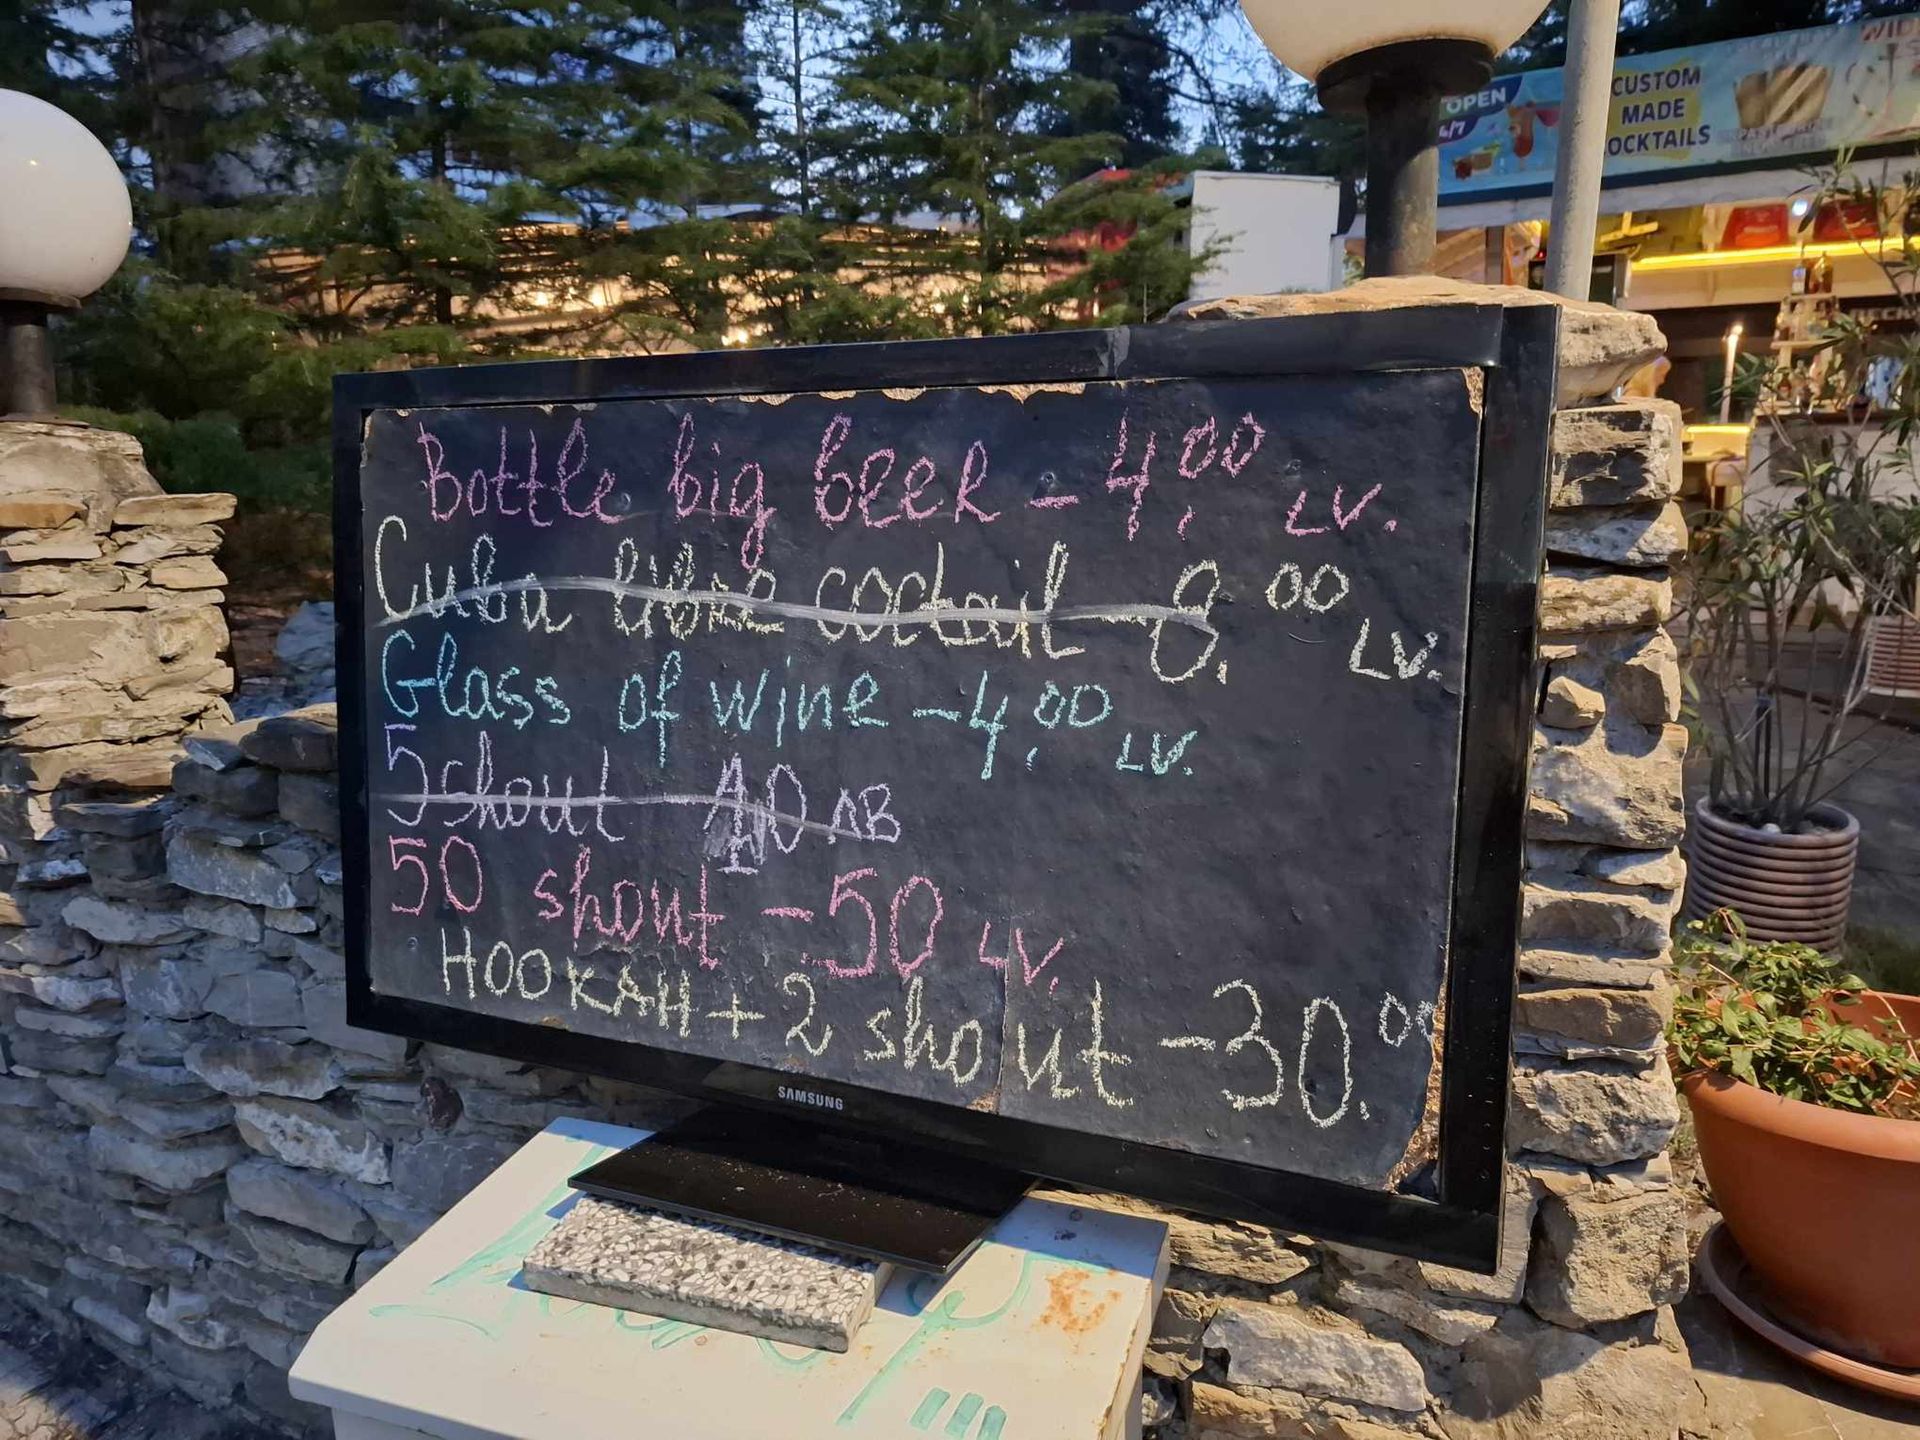 OPEN
CUSTOM
MADE
OCKTAILS
Bottle big beer - 4,00 LV.
Cuba libre coctail - 8,00 LV.
Glass of wine - 4,00 LV.
5 shout 10 лв
50 shout - 50 LV.
HOOKAH + 2 shout - 30,00
SAMSUNG